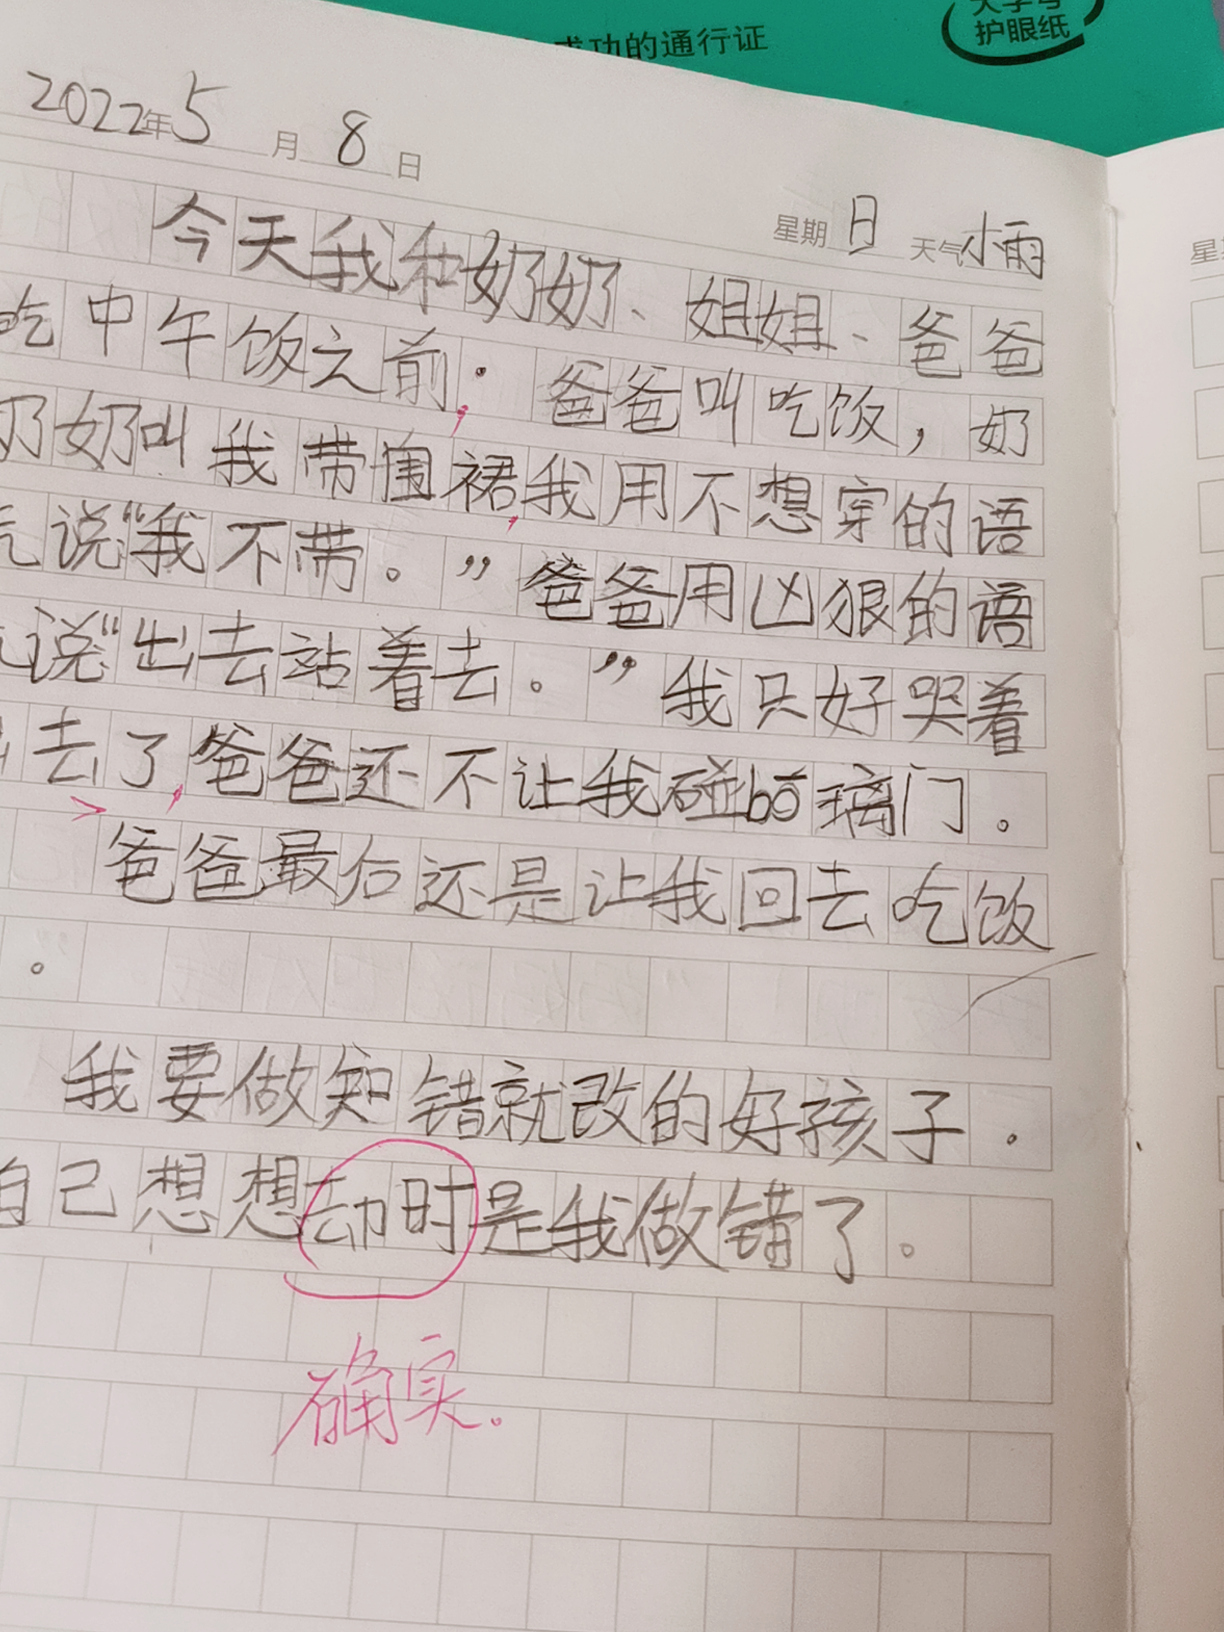 成功的通行证
大字号
护眼纸
2022年5月8日
星期日 天气小雨
今天我和奶奶、姐姐、爸爸
吃中午饭之前，爸爸叫吃饭，奶
奶奶叫我带围裙,我用不想穿的语
气说“我不带。”爸爸用凶狠的语
气说“出去站着去。”我只好哭着
出去了,爸爸还不让我碰bō璃门。
爸爸最后还是让我回去吃饭
。
我要做知错就改的好孩子.
自己想想却时是我做错了。
确实.
星